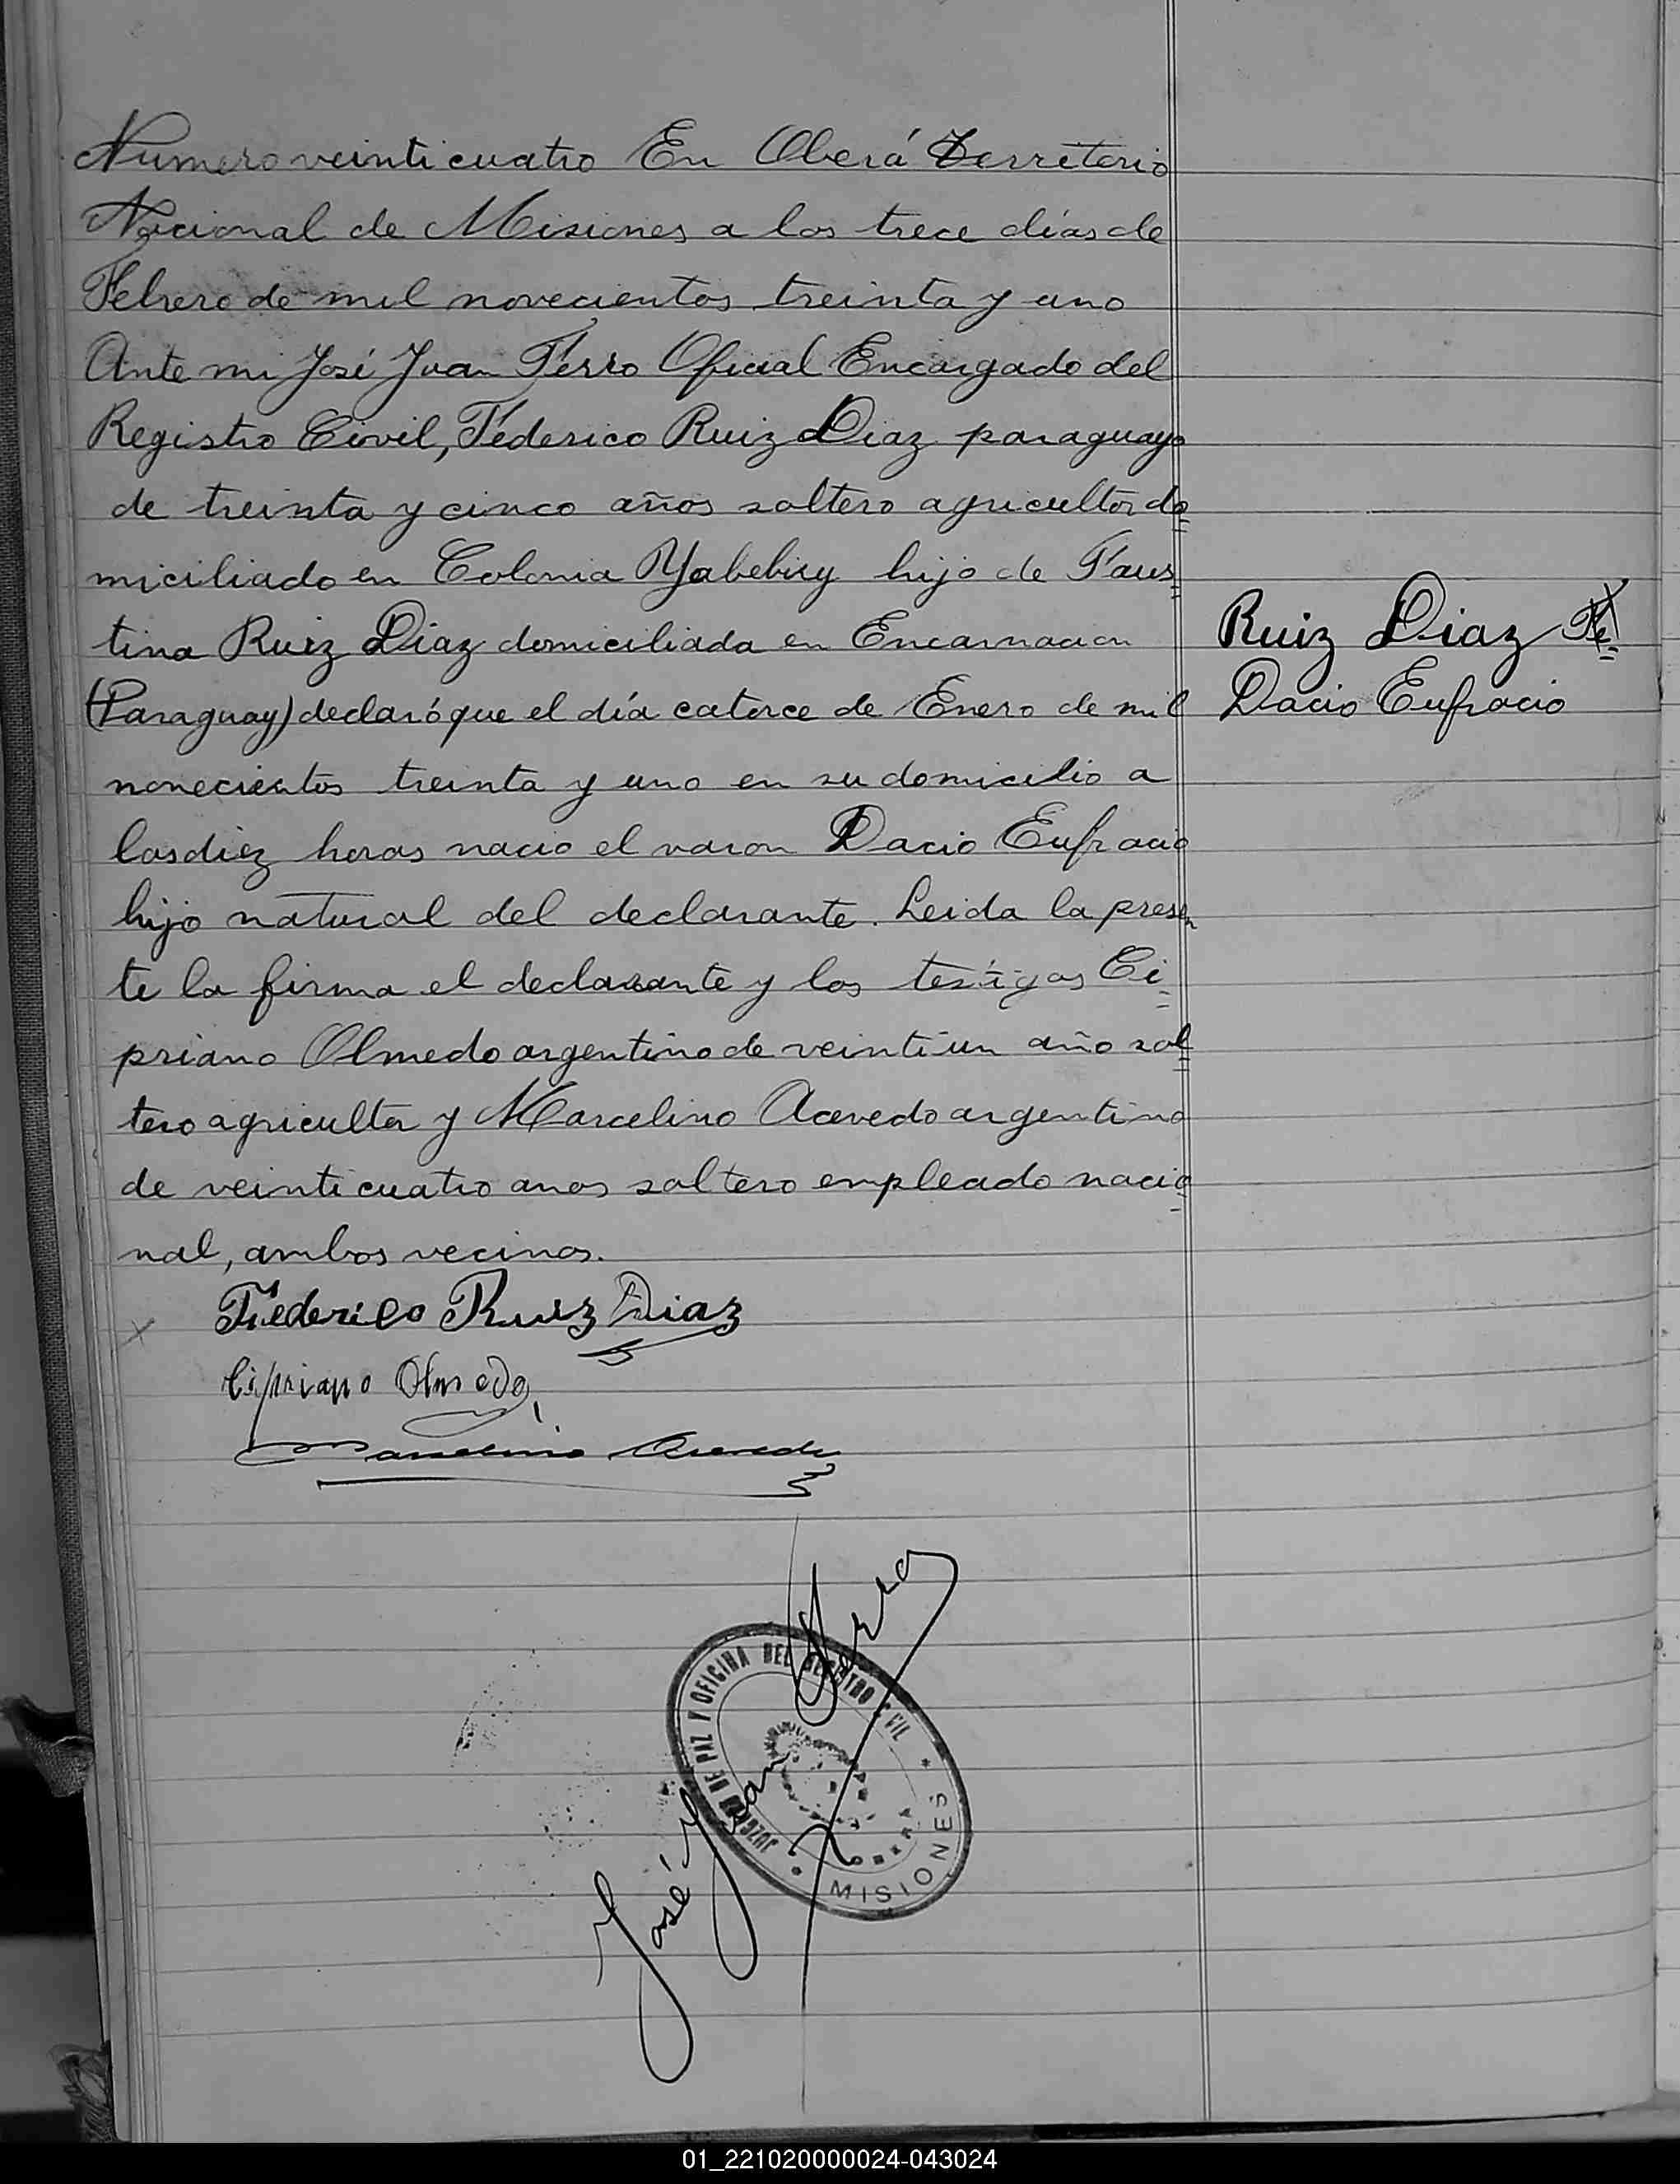 Numero veinticuatro En Oberá Territorio
Nacional de Misiones a los trece días de
Febrero de mil novecientos treinta y uno
Ante mi José Juan Ferro Oficial Encargado del
Registro Civil, Federico Ruiz Diaz paraguayo
de treinta y cinco años soltero agricultor do=
miciliado en Colonia Yabebiry hijo de Faus=
tina Ruiz Diaz domiciliada en Encarnacion
(Paraguay) declaró que el día catorce de Enero de mil
novecientos treinta y uno en su domicilio a
las diez horas nacio el varon Dacio Eufracio
hijo natural del declarante. Leida la presen
te la firma el declarante y los testigos Ci=
priano Olmedo argentino de veintiun año sol=
tero agricultor y Marcelino Acevedo argentino
de veinticuatro anos soltero empleado nacio=
nal, ambos vecinos.
Ruiz Diaz
Dacio Eufracio
Federico Ruiz Diaz
Cipriano Olmedo
Marcelino Acevedo
José Juan Ferro
JUZGADO DE PAZ Y OFICINA DEL REGISTRO CIVIL
OBERA
MISIONES
01_221020000024-043024